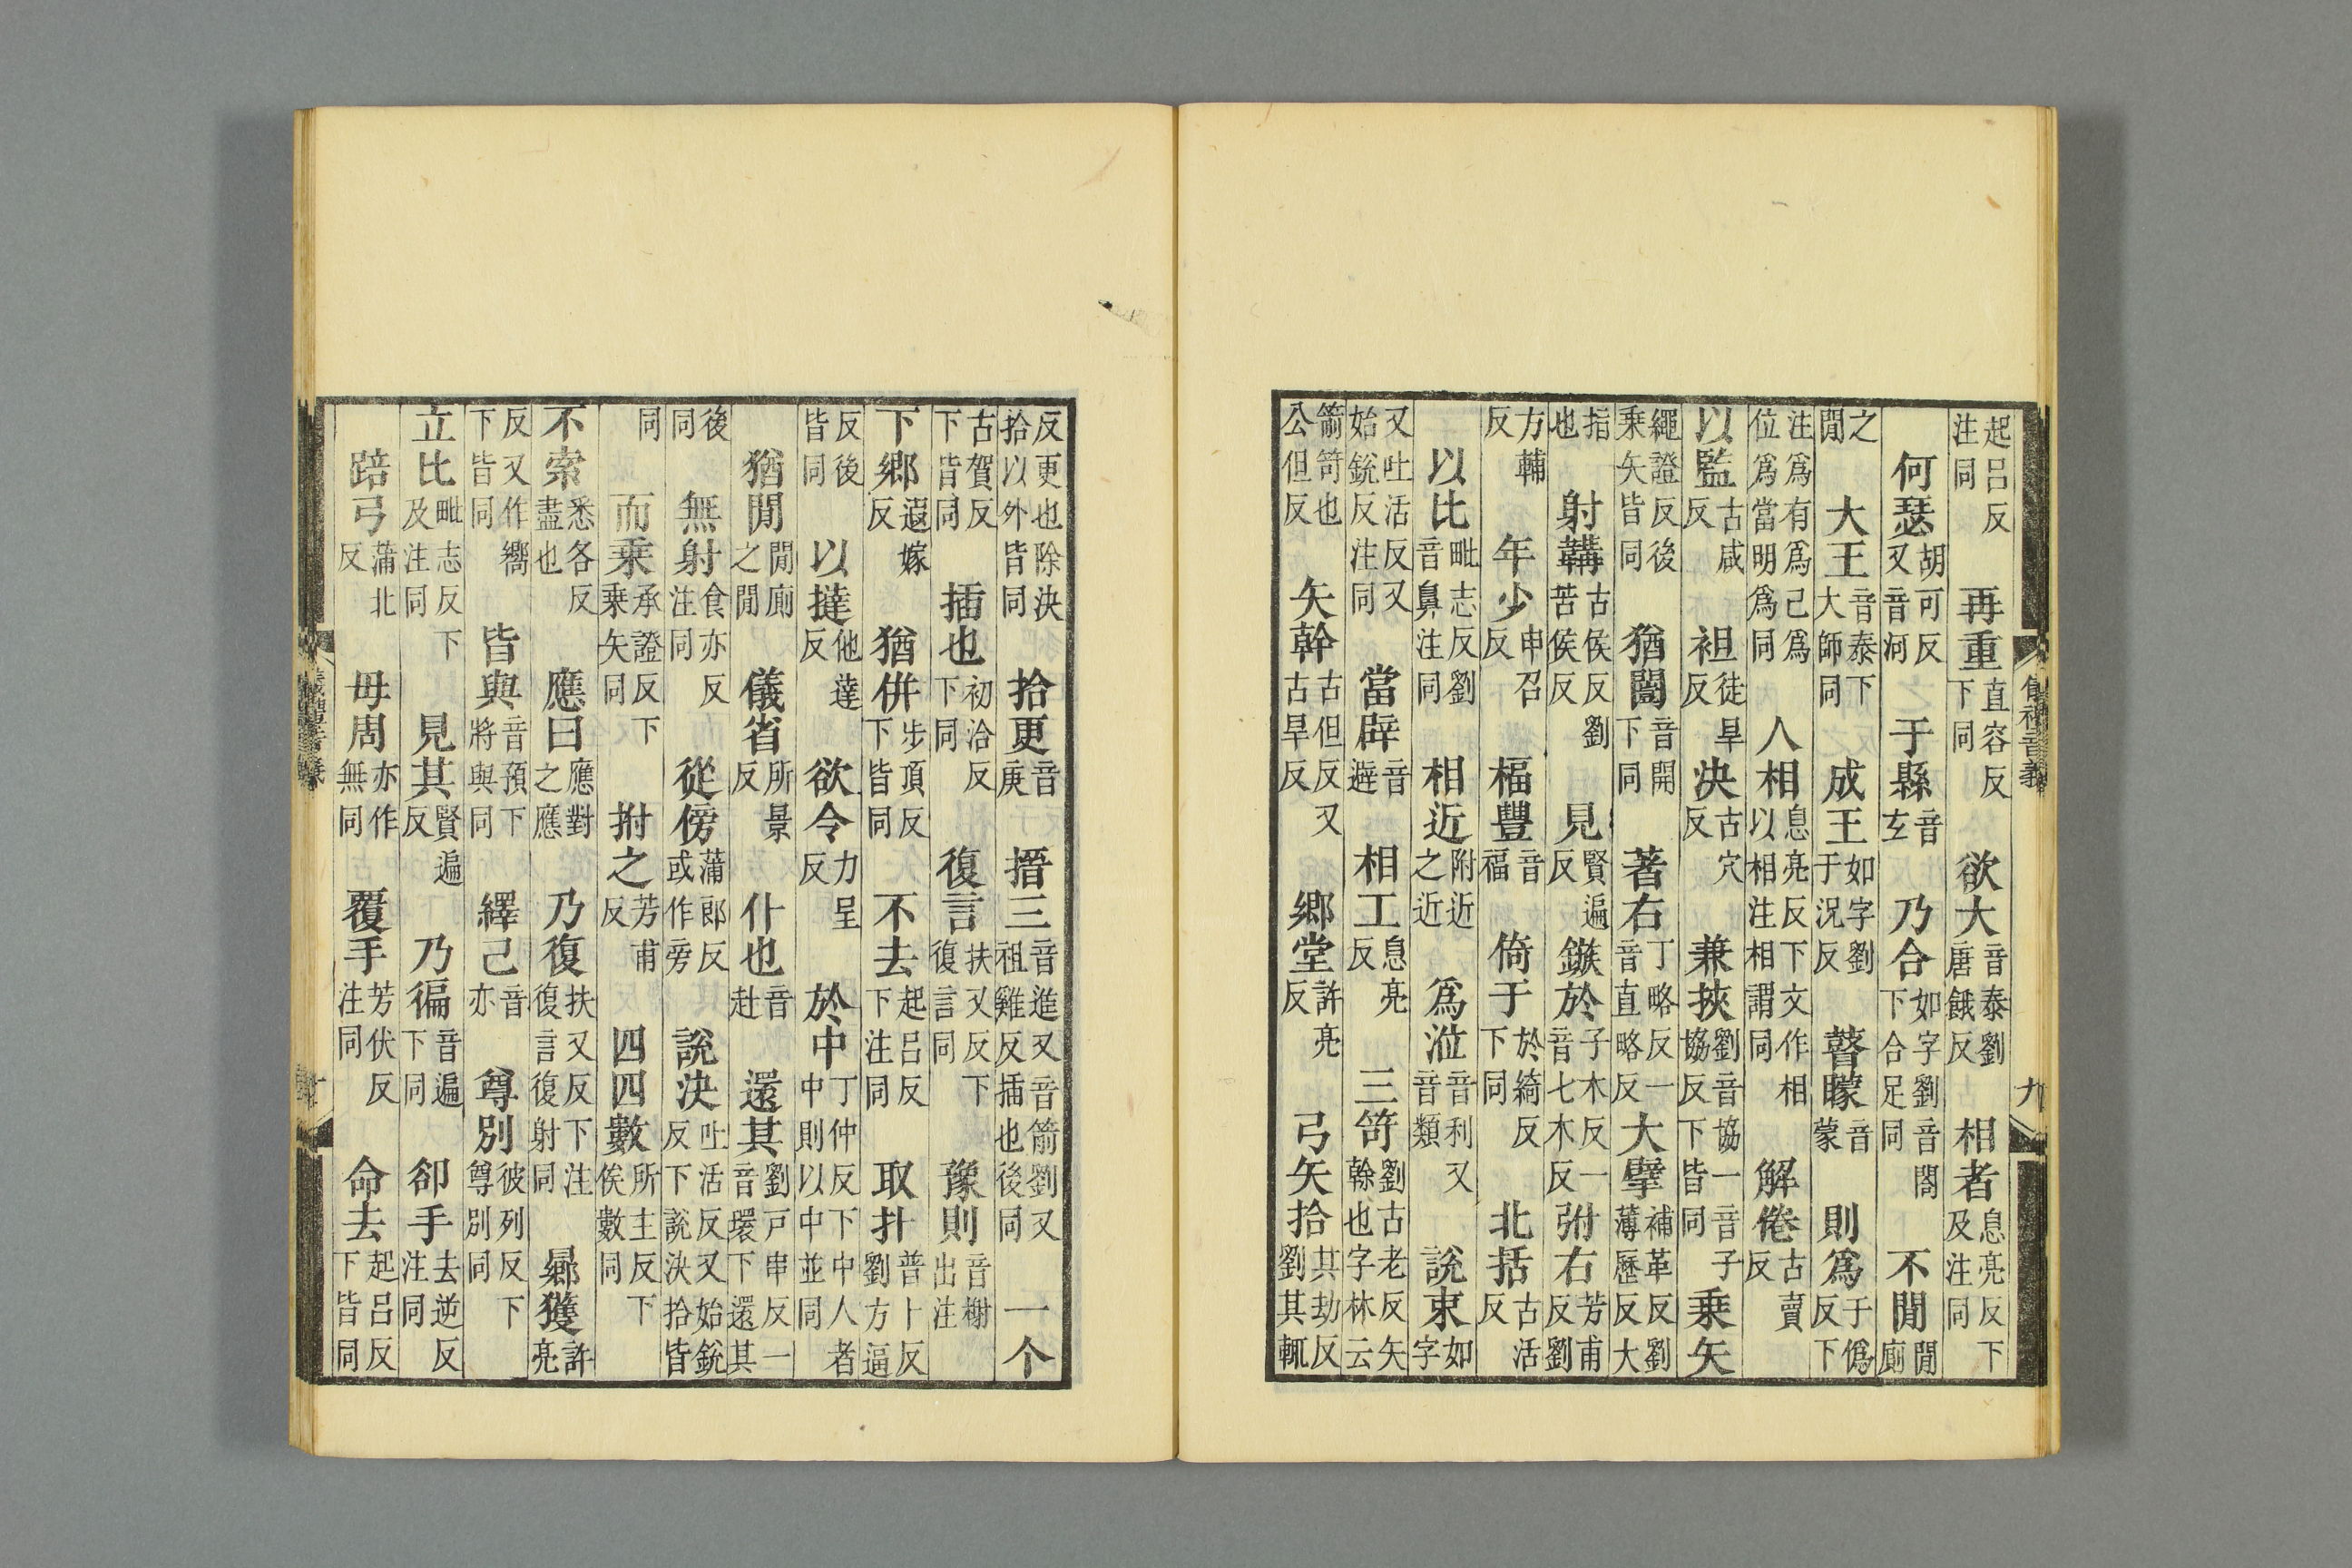 起呂反注同 再重直容反下同 欲大音泰劉唐餓反 相者息亮反下及注同
何瑟胡可反又音河 于縣音玄 乃合如字劉音閤下合足同 不閒閒廁
之閒 大王音泰下大師同 成王如字劉于況反 瞽矇音蒙 則爲于僞反下
注爲有爲爲己爲位爲當明爲同 人相息亮反下文作相以相相注相謂同 解倦古賣反
以監古咸反 袒徒旱反 決古穴反 兼挾劉音協一音子協反下皆同 乗矢
繩證反後乗矢皆同 猶闓音開下同 著右丁略反一音直略反 大擘補革反劉薄歷反大
指也 射韝古侯反劉苦侯反 見賢遍反 鏃於子木反一音七木反 弣右芳甫反劉
方輔反 年少申召反 楅豐音福 倚于於綺反下同 北括古活反
以比毗志反劉音鼻注同 相近附近之近 爲涖音利又音類 説束如字
又吐活反又始銳反注同 當辟音避 相工息亮反 三笴劉古老反矢榦也字林云
箭笴也公但反 矢幹古但反又古旱反 鄉堂許亮反 弓矢拾其劫反劉其輒
儀禮音義 九
反更也除決拾以外皆同 拾更音庚 搢三音進又音箭劉又祖雞反插也後同 一个
古賀反下皆同 插也初洽反下同 復言扶又反下復言同 豫則音榭出注
下鄉遐嫁反 猶併步頂反下皆同 不去起呂反下注同 取扑普卜反劉方逼
反後皆同 以撻他達反 欲令力呈反 於中丁仲反下中人者中則以中並同
猶閒閒廁之閒 儀省所景反 仆也音赴 還其劉戸串反一音環下還其
後同 無射食亦反注同 從傍蒲郎反或作旁 説決吐活反又始銳反下説決拾皆
同 而乗承證反下乗矢同 拊之芳甫反 四四數所主反下俟數同
不索悉各反盡也 應曰應對之應 乃復扶又反下注復言復射同 鄉獲許亮
反又作嚮下皆同 皆與音預下將與同 繹己音亦 尊別彼列反下尊別同
立比毗志反下及注同 見其賢遍反 乃徧音遍下同 卻手去逆反注同
踣弓蒲北反 毋周亦作無同 覆手芳伏反注同 命去起呂反下皆同